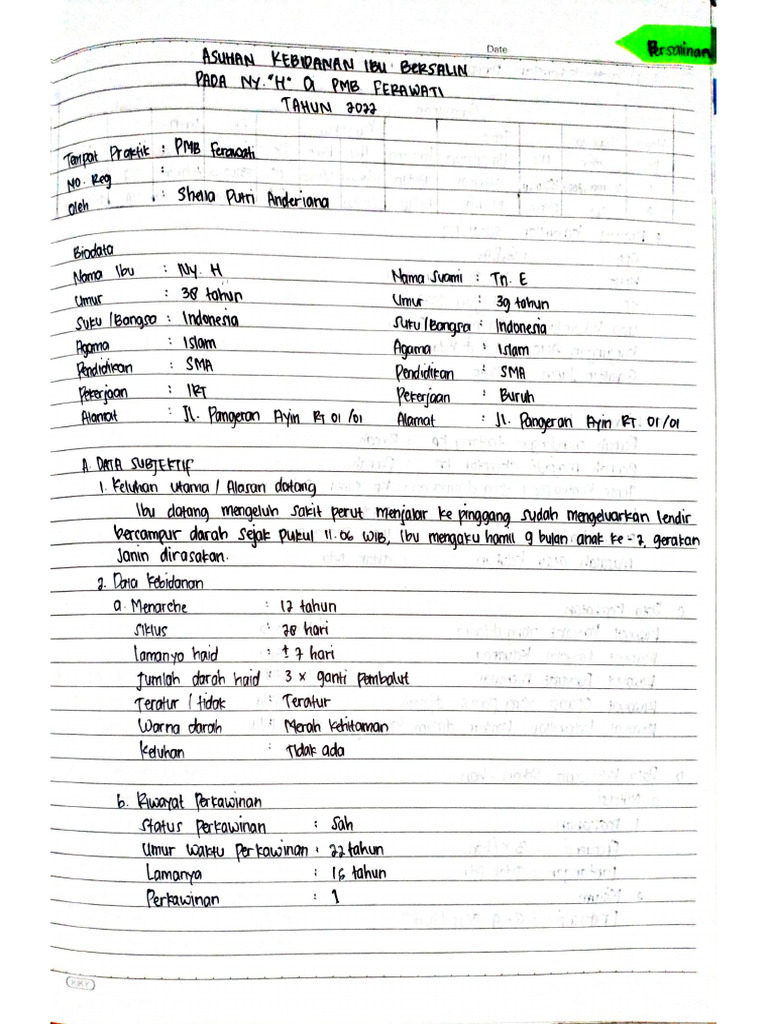 Date
Persalinan
ASUHAN KEBIDANAN IBU BERSALIN
PADA NY. "H" Di PMB FERAWATI
TAHUN 2022
Tempat Praktik : PMB Ferawati
No. Reg :
Oleh : Shella Putri Anderiana
Biodata
Nama Ibu : Ny. H Nama Suami : Tn. E
Umur : 38 tahun Umur : 39 tahun
Suku/Bangsa : Indonesia Suku/Bangsa : Indonesia
Agama : Islam Agama : Islam
Pendidikan : SMA Pendidikan : SMA
Pekerjaan : IRT Pekerjaan : Buruh
Alamat : Jl. Pangeran Ayin RT 01/01 Alamat : Jl. Pangeran Ayin RT. 01/01
A. DATA SUBJEKTIF
1. Keluhan utama / Alasan datang
Ibu datang mengeluh sakit perut menjalar ke pinggang sudah mengeluarkan lendir
bercampur darah sejak pukul 11.06 WIB, Ibu mengaku hamil 9 bulan anak ke-2, gerakan
Janin dirasakan.
2. Data kebidanan
a. Menarche : 12 tahun
Siklus : 28 hari
Lamanya haid : ± 7 hari
Jumlah darah haid : 3 x ganti pembalut
Teratur / tidak : Teratur
Warna darah : Merah kehitaman
Keluhan : Tidak ada
b. Riwayat Perkawinan
Status perkawinan : Sah
Umur waktu perkawinan : 22 tahun
Lamanya : 16 tahun
Perkawinan : 1
KKY